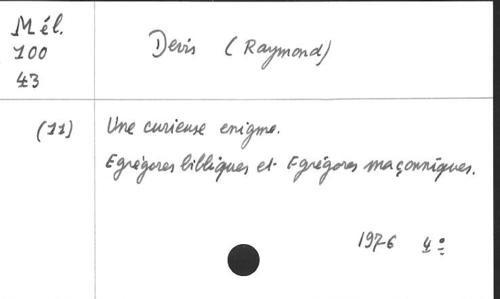 Mél.
100
43
Devis (Raymond)
(11)
Une curieuse enigme.
Egrégores bibliques et Egrégores maçonniques.
1976 4º